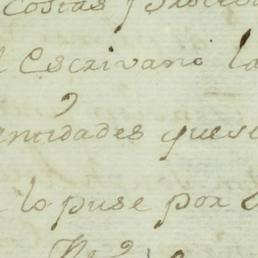 costas
Escrivano la
antidades que se
lo puse por